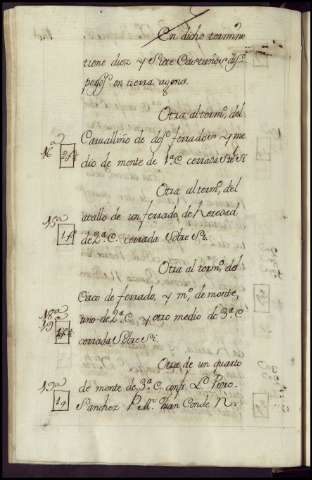 En dicho termino
tiene diez y Siete Castaños
en tierra agena.
Otra al termº del
Carvalliño de dos ferrados y me
16ª dio de monte de 1ª C. cerrada
Otra al termº del
vallo de un ferrado de
15ª de 2ª C. cerrada Sobre Si.
1f
Otra al termº del
Caco de ferrado, y mº de monte,
18ª uno de 2ª C. y otro medio de 3ª C.
19ª cerrada Sobre Si.
Otra de un quarto
19ª de monte de 3ª C. confª Lte Pedro
1q Sanchez Pte Mte Juan Conde N.